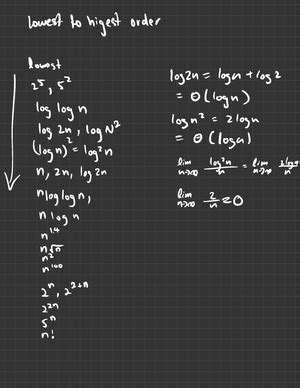 lowest to higest order
lowest
2⁵, 5²
log log n
log 2n, log N²
(log n)² = log²n
n, 2n, log 2n
n log log n,
n log n
n^1.4
n√n
n²
n^100
2^n, 2^2+n
2^2n
5^n
n!
log 2n = log n + log 2
= Θ(log n)
log n² = 2 log n
= Θ(log n)
lim n→∞ log²n = lim n→∞
lim n→∞ 2/n = 0